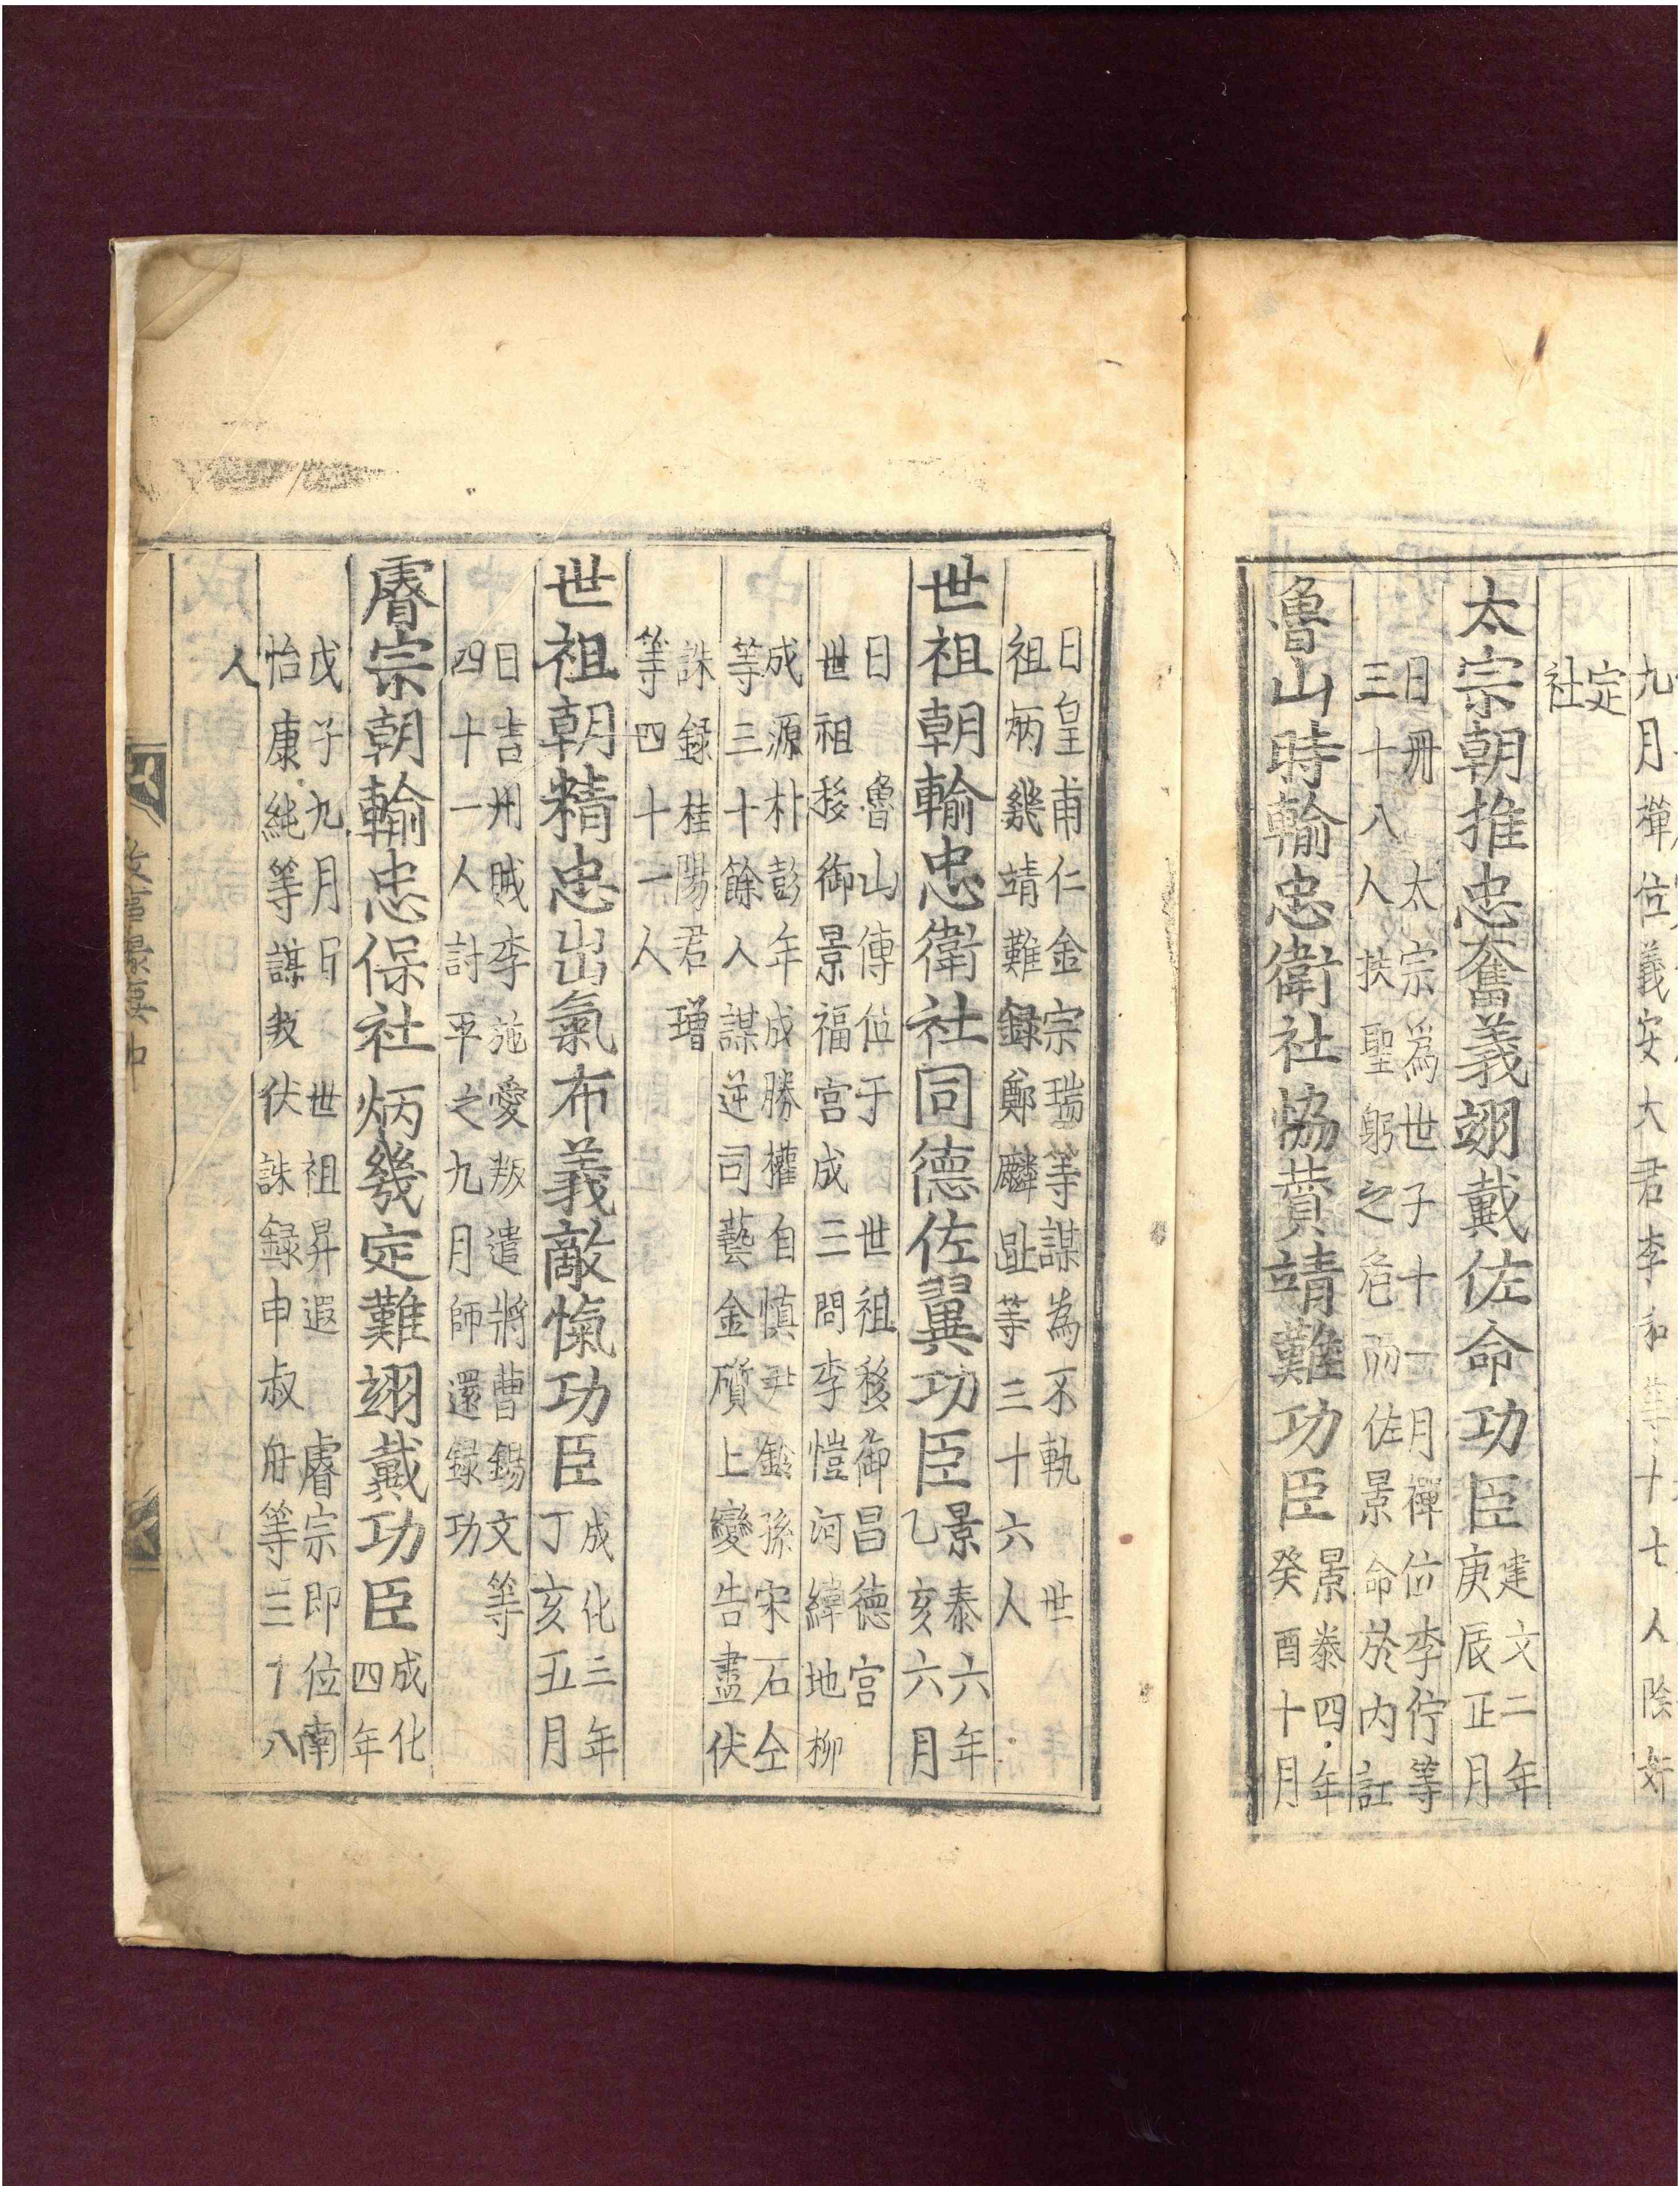 九月禪位義安大君李和等十七人除奸
定
社
太宗朝推忠奮義翊戴佐命功臣建文二年
庚辰正月
日冊 太宗爲世子十一月禪位李佇等
三十八人扶聖躬之危而佐景命於內訌
魯山時輸忠衛社協贊靖難功臣景泰四年
癸酉十月
日皇甫仁金宗瑞等謀為不軌 世
祖炳幾靖難錄鄭麟趾等三十六人
世祖朝輸忠衛社同德佐翼功臣景泰六年
乙亥六月
日 魯山傳位于 世祖移御昌德宮
世祖移御景福宮成三問李愷河緯地柳
成源朴彭年成勝權自愼尹鈴孫宋石仝
等三十餘人謀逆司藝金礩上變告盡伏
誅錄桂陽君璔
等四十一人
世祖朝精忠出氣布義敵愾功臣成化三年
丁亥五月
日吉州賊李施愛叛遣將曹錫文等
四十一人討平之九月師還錄功
睿宗朝輸忠保社炳幾定難翊戴功臣成化
四年
戊子九月日 世祖昇遐 睿宗即位南
怡康純等謀叛伏誅錄申叔舟等三十八
人
攷事最要 中